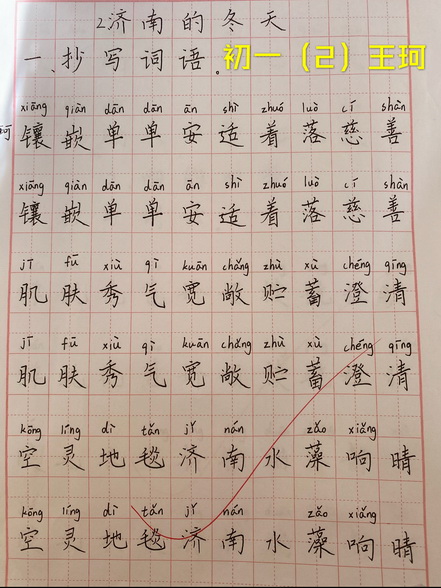 2济南的冬天
一、抄写词语。初一（2）王珂
珂
xiāng qiàn dān dān ān shì zhuó luò cí shàn
镶嵌单单安适着落慈善
xiāng qiàn dān dān ān shì zhuó luò cí shàn
镶嵌单单安适着落慈善
jī fū xiù qì kuān chǎng zhù xù chéng qīng
肌肤秀气宽敞贮蓄澄清
jī fū xiù qì kuān chǎng zhù xù chéng qīng
肌肤秀气宽敞贮蓄澄清
kōng líng dì tǎn jǐ nán zǎo xiǎng
空灵地毯济南水藻响晴
kōng líng dì tǎn jǐ nán zǎo xiǎng
空灵地毯济南水藻响晴